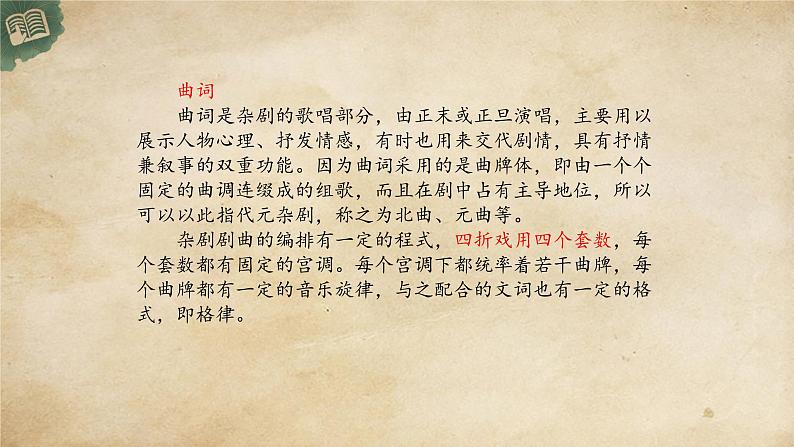 曲词
曲词是杂剧的歌唱部分，由正末或正旦演唱，主要用以
展示人物心理、抒发情感，有时也用来交代剧情，具有抒情
兼叙事的双重功能。因为曲词采用的是曲牌体，即由一个个
固定的曲调连缀成的组歌，而且在剧中占有主导地位，所以
可以以此指代元杂剧，称之为北曲、元曲等。
杂剧剧曲的编排有一定的程式，四折戏用四个套数，每
个套数都有固定的宫调。每个宫调下都统率着若干曲牌，每
个曲牌都有一定的音乐旋律，与之配合的文词也有一定的格
式，即格律。